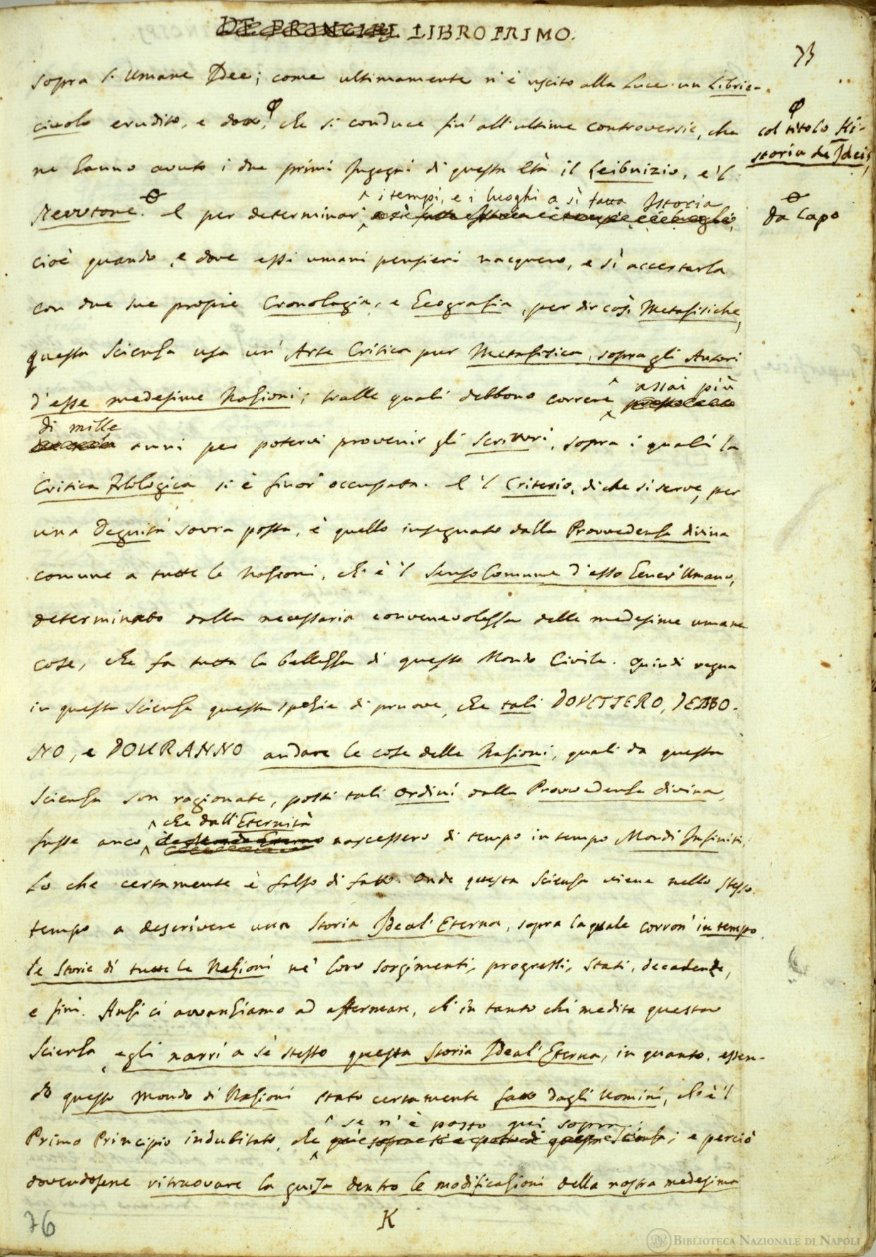 DE PRINCIPJ LIBRO PRIMO.
73
sopra l'Umane Idee; come ultimamente n'è uscito alla Luce un Libric-
ciuolo erudito, e dotto, φ che si conduce fin' all'ultime controversie, che
φ
col titolo Hi-
storia de Ideis,
ne hanno avuto i due primi Ingegni di questa Età il Leibnizio, e 'l
Nevvtone. E per determinar i tempi, e i luoghi a sì fatta Istoria,
da Capo
cioè quando, e dove essi umani pensieri nacquero, e sì accertarla
con due sue propie Cronologia, e Geografia, per dir così, Metafisiche,
questa Scienza usa un' Arte Critica pur Metafisica, sopra gli Autori
d'esse medesime Nazioni; tralle quali debbono correre assai più
di mille anni per potervi provenir gli Scrittori, sopra i quali la
Critica Filologica si è finor' occupata. E 'l Criterio, di che si serve, per
una Degnità sovra posta, è quello insegnato dalla Provvedenza divina
comune a tutte le Nazioni, ch'è 'l Senso Comune d'esso Gener' Umano,
determinato dalla necessaria convenevolezza delle medesime umane
cose, che fa tutta la bellezza di questo Mondo Civile. Quindi regna
in questa Scienza questa spezie di pruove, che tali DOVETTERO, DEBBO-
NO, e DOVRANNO andare le cose delle Nazioni, quali da questa
Scienza son ragionate, posti tali Ordini dalla Provvedenza divina,
fusse anco che dall'Eternità nascessero di tempo in tempo Mondi Infiniti;
Lo che certamente è falso di fatto. Onde questa Scienza viene nello stesso
tempo a descrivere una Storia Ideal' Eterna, sopra la quale corron' in tempo
le Storie di tutte le Nazioni ne' loro sorgimenti, progressi, stati, decadenze,
e fini. Anzi ci avvanziamo ad affermare, ch'in tanto chi medita questa
Scienza, egli narri a sè stesso questa Storia Ideal' Eterna, in quanto, essen-
do questo Mondo di Nazioni stato certamente fatto dagli Uomini, ch'è 'l
Primo Principio indubitato, che se n'è posto qui sopra; e perciò
dovendosene ritruovare la guisa dentro le modificazioni della nostra medesima
K
76
BIBLIOTECA NAZIONALE DI NAPOLI